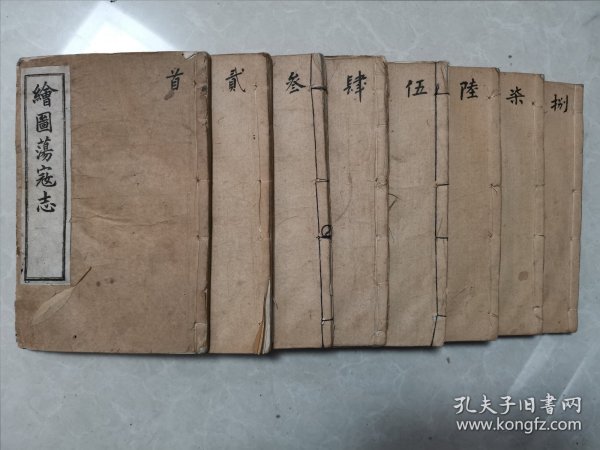 繪圖蕩寇志
首
貳
叁
肆
伍
陸
柒
捌
孔夫子旧书网
www.kongfz.com